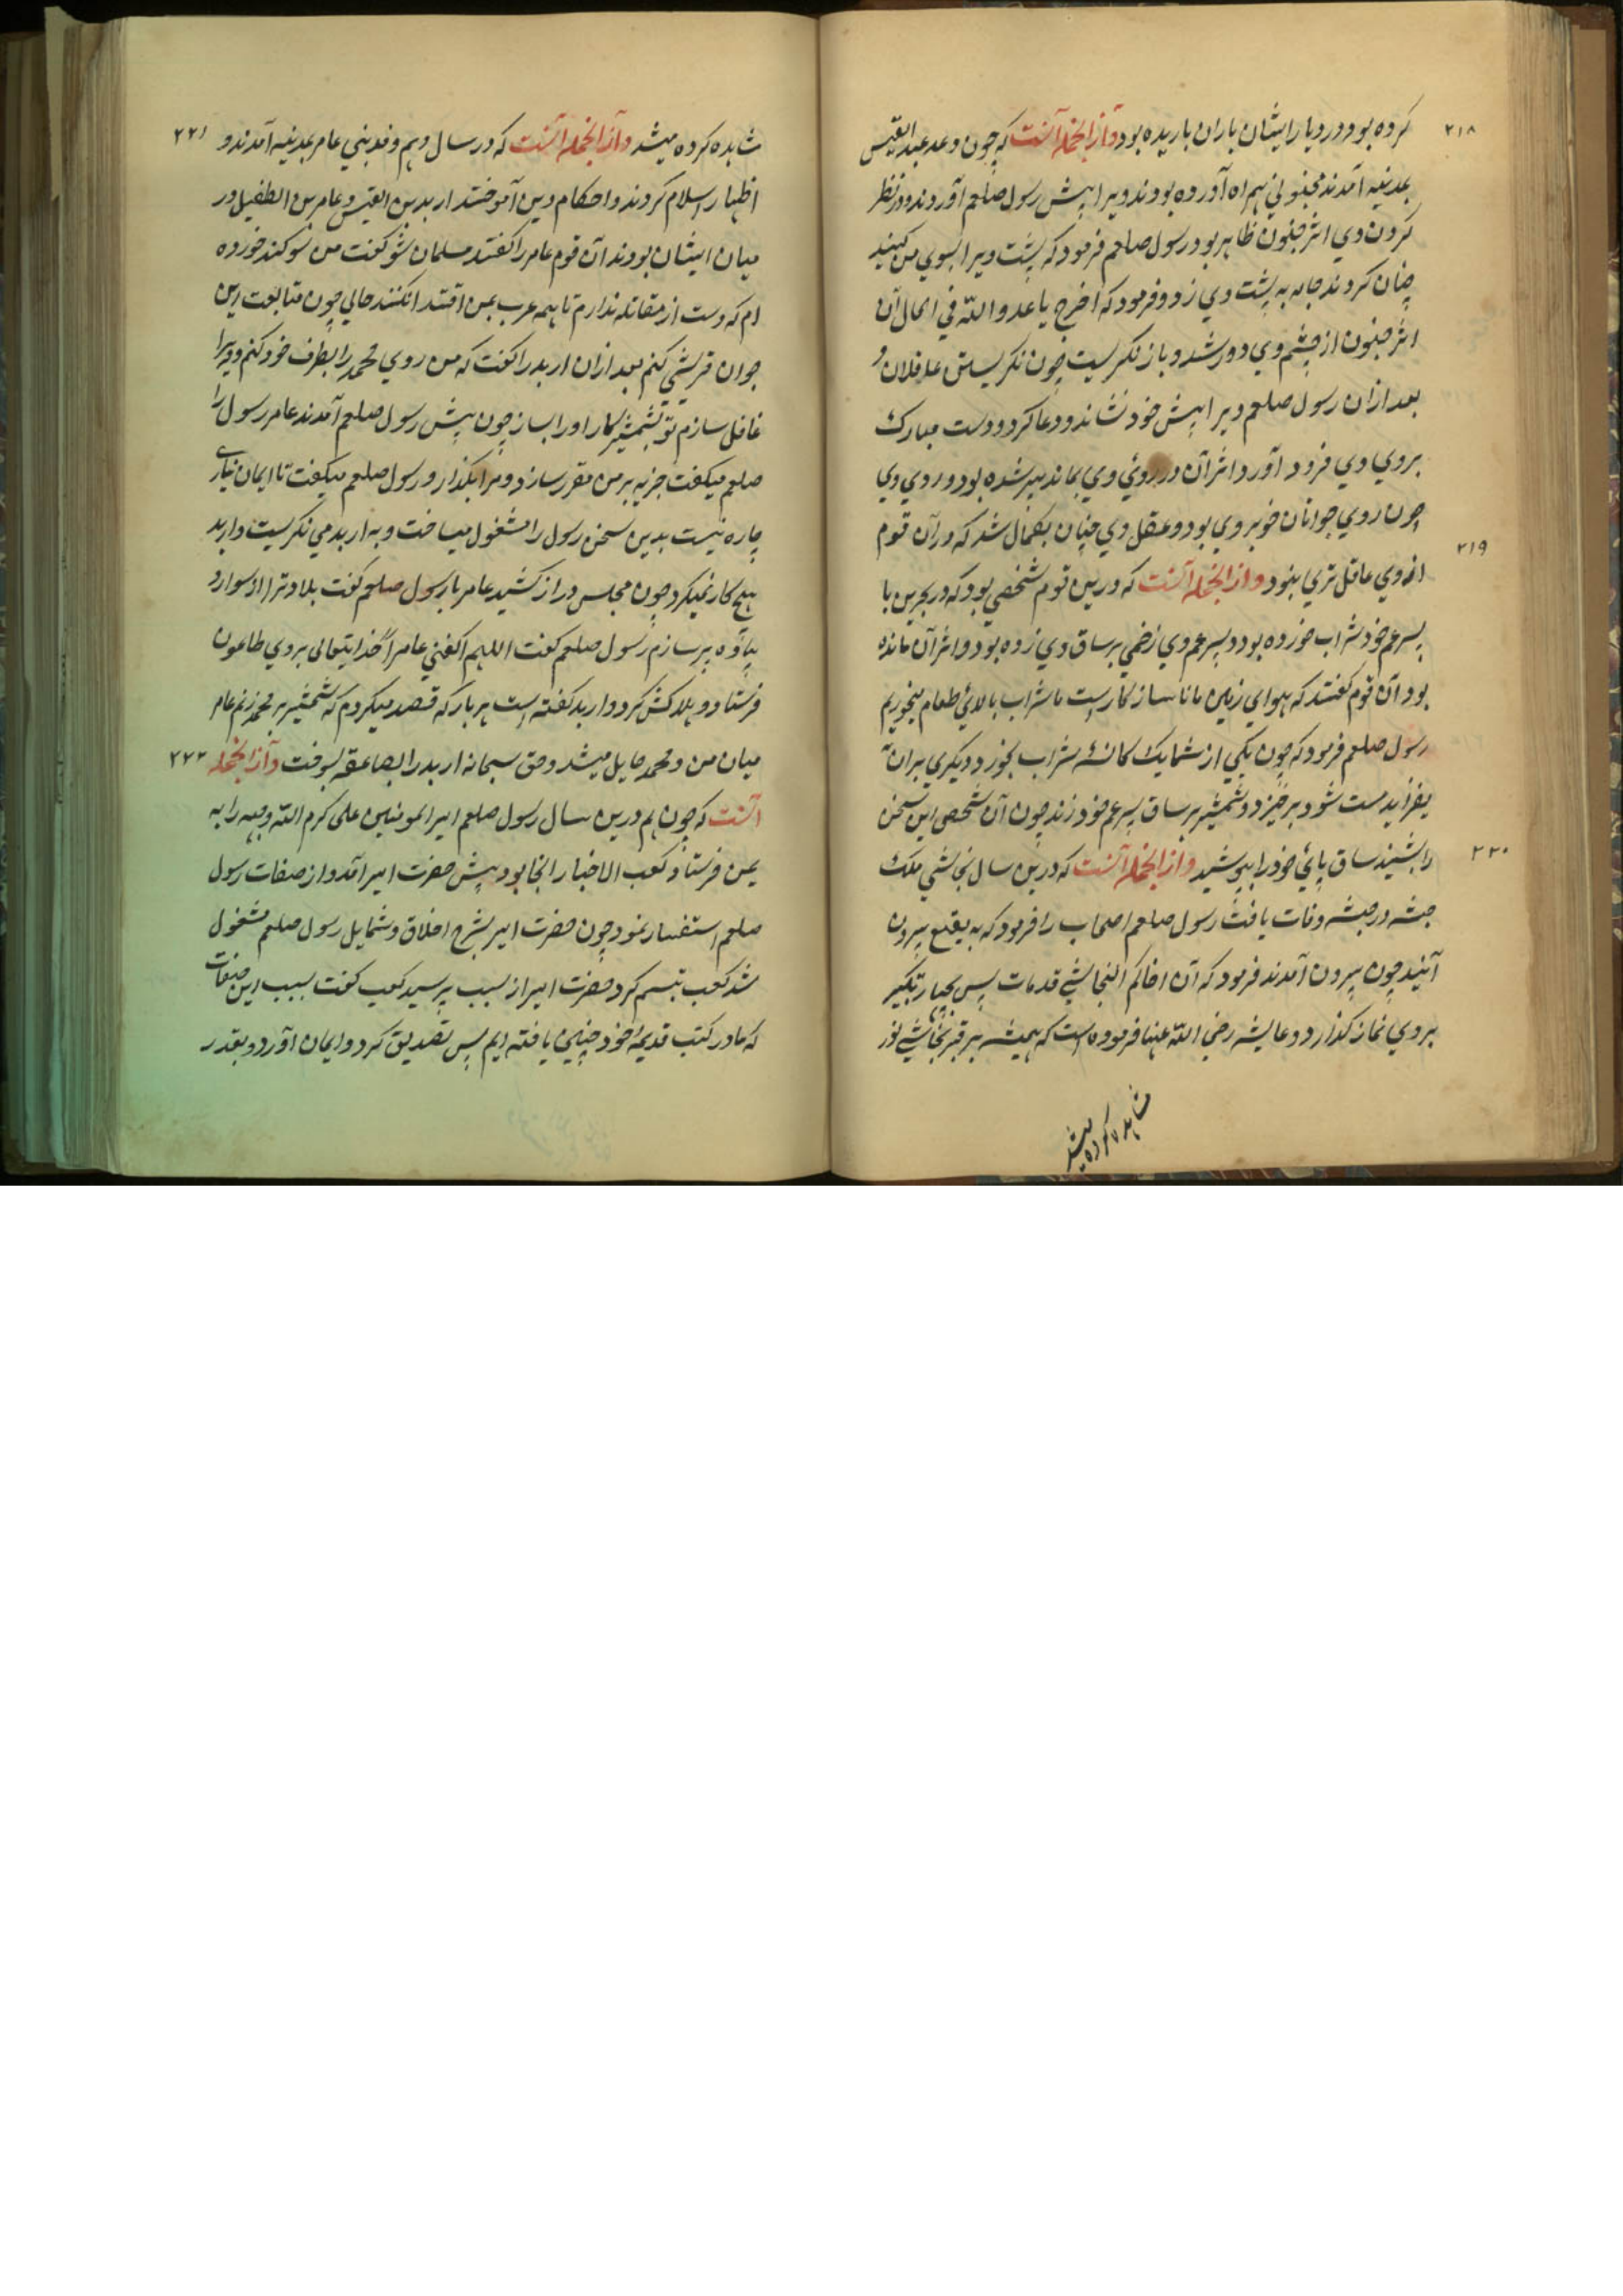 ۲۱۸
کرده بود و در دیار ایشان باران باریده بود و از انجمله آنست که چون وفد عبد القیس
بمدینه آمدند مجنونی همراه آورده بودند ویرا پیش رسول صلعم آوردند و در نظر
کردن وی اثر جنون ظاهر بود رسول صلعم فرمود که پشت ویرا بسوی من کنید
چنان کردند جامه به پشت وی زد و فرمود که اخرج یا عدو الله فی الحال آن
اثر جنون از چشم وی دور شد و باز نگریست چون نگریستن عاقلان و
بعد ازان رسول صلعم ویرا پیش خود نشاند و دعا کرد و دست مبارک
بروی وی فرود آورد اثر آن در روی وی بماند پیر شده بود و روی وی
چون روی جوانان خوبروی بود و عقل وی چنان بکمال شد که در آن قوم
۲۱۹
از وی عاقل تری نبود و از انجمله آنست که درین قوم شخصی بود که در بحرین با
پسر عم خود شراب خورده بود و پسر عم وی زخمی بر ساق وی زده بود و اثر آن مانده
بود آن قوم گفتند که هوای زمین ما ناسازگارست ما شراب بالای طعام میخوریم
رسول صلعم فرمود که چون یکی از شما یک کاسه شراب بخورد و دیگری بران
بیفزاید مست شود برخیزد و شمشیر بر ساق پسر عم خود زند چون آن شخص این سخن
۲۲۰
را بشنید ساق پای خود را بپوشید و از انجمله آنست که درین سال نجاشی ملک
حبشه در حبشه وفات یافت رسول صلعم اصحاب را فرمود که به بقیع بیرون
آئید چون بیرون آمدند فرمود که آن اخاکم النجاشی قد مات پس بچهار تکبیر
بروی نماز گذارد و عایشه رضی الله عنها فرموده است که همیشه بر قبر نجاشی نور
مشاهده کرده میشد
۲۲۱
شاهده کرده میشد و از انجمله آنست که در سال دهم وفد بنی عامر بمدینه آمدند و
اظهار اسلام کردند و احکام دین آموختند اربد بن القیس و عامر بن الطفیل در
میان ایشان بودند آن قوم عامر را گفتند مسلمان شو گفت من سوگند خورده
ام که دست از مقاتله ندارم تا همه عرب بمن اقتدا نکنند حالی چون متابعت این
جوان قرشی کنم بعد ازان اربد را گفت که من روی محمد را بطرف خود کنم و ویرا
غافل سازم تو بشمشیر کار او را بساز چون پیش رسول صلعم آمدند عامر رسول را
صلعم میگفت جزیه بر من مقرر ساز و مرا بگذار و رسول صلعم میگفت تا ایمان نیاری
چاره نیست بدین سخن رسول را مشغول میساخت و به اربد می نگریست و اربد
هیچ کار نمیکرد چون مجلس دراز کشید عامر با رسول صلعم گفت بلاد ترا از سوار و
پیاده پر سازم رسول صلعم گفت اللهم اکفنی عامرا خدایتعالی بروی طاعون
فرستاد و هلاکش کرد و اربد گفته است هر بار که قصد میکردم که شمشیر بر محمد زنم عامر
میان من و محمد حایل میشد و حق سبحانه اربد را بصاعقه بسوخت و از انجمله ۲۲۲
آنست که چون هم درین سال رسول صلعم امیر المومنین علی کرم الله وجهه را به
یمن فرستاد کعب الاخبار آنجا بود پیش حضرت امیر آمد و از صفات رسول
صلعم استفسار نمود چون حضرت امیر بشرح اخلاق و شمایل رسول صلعم مشغول
شد کعب تبسم کرد حضرت امیر از سبب پرسید کعب گفت بسبب این صفات
که ما در کتب قدیمهٔ خود چنین یافته ایم پس تصدیق کرد و ایمان آورد و بقدر